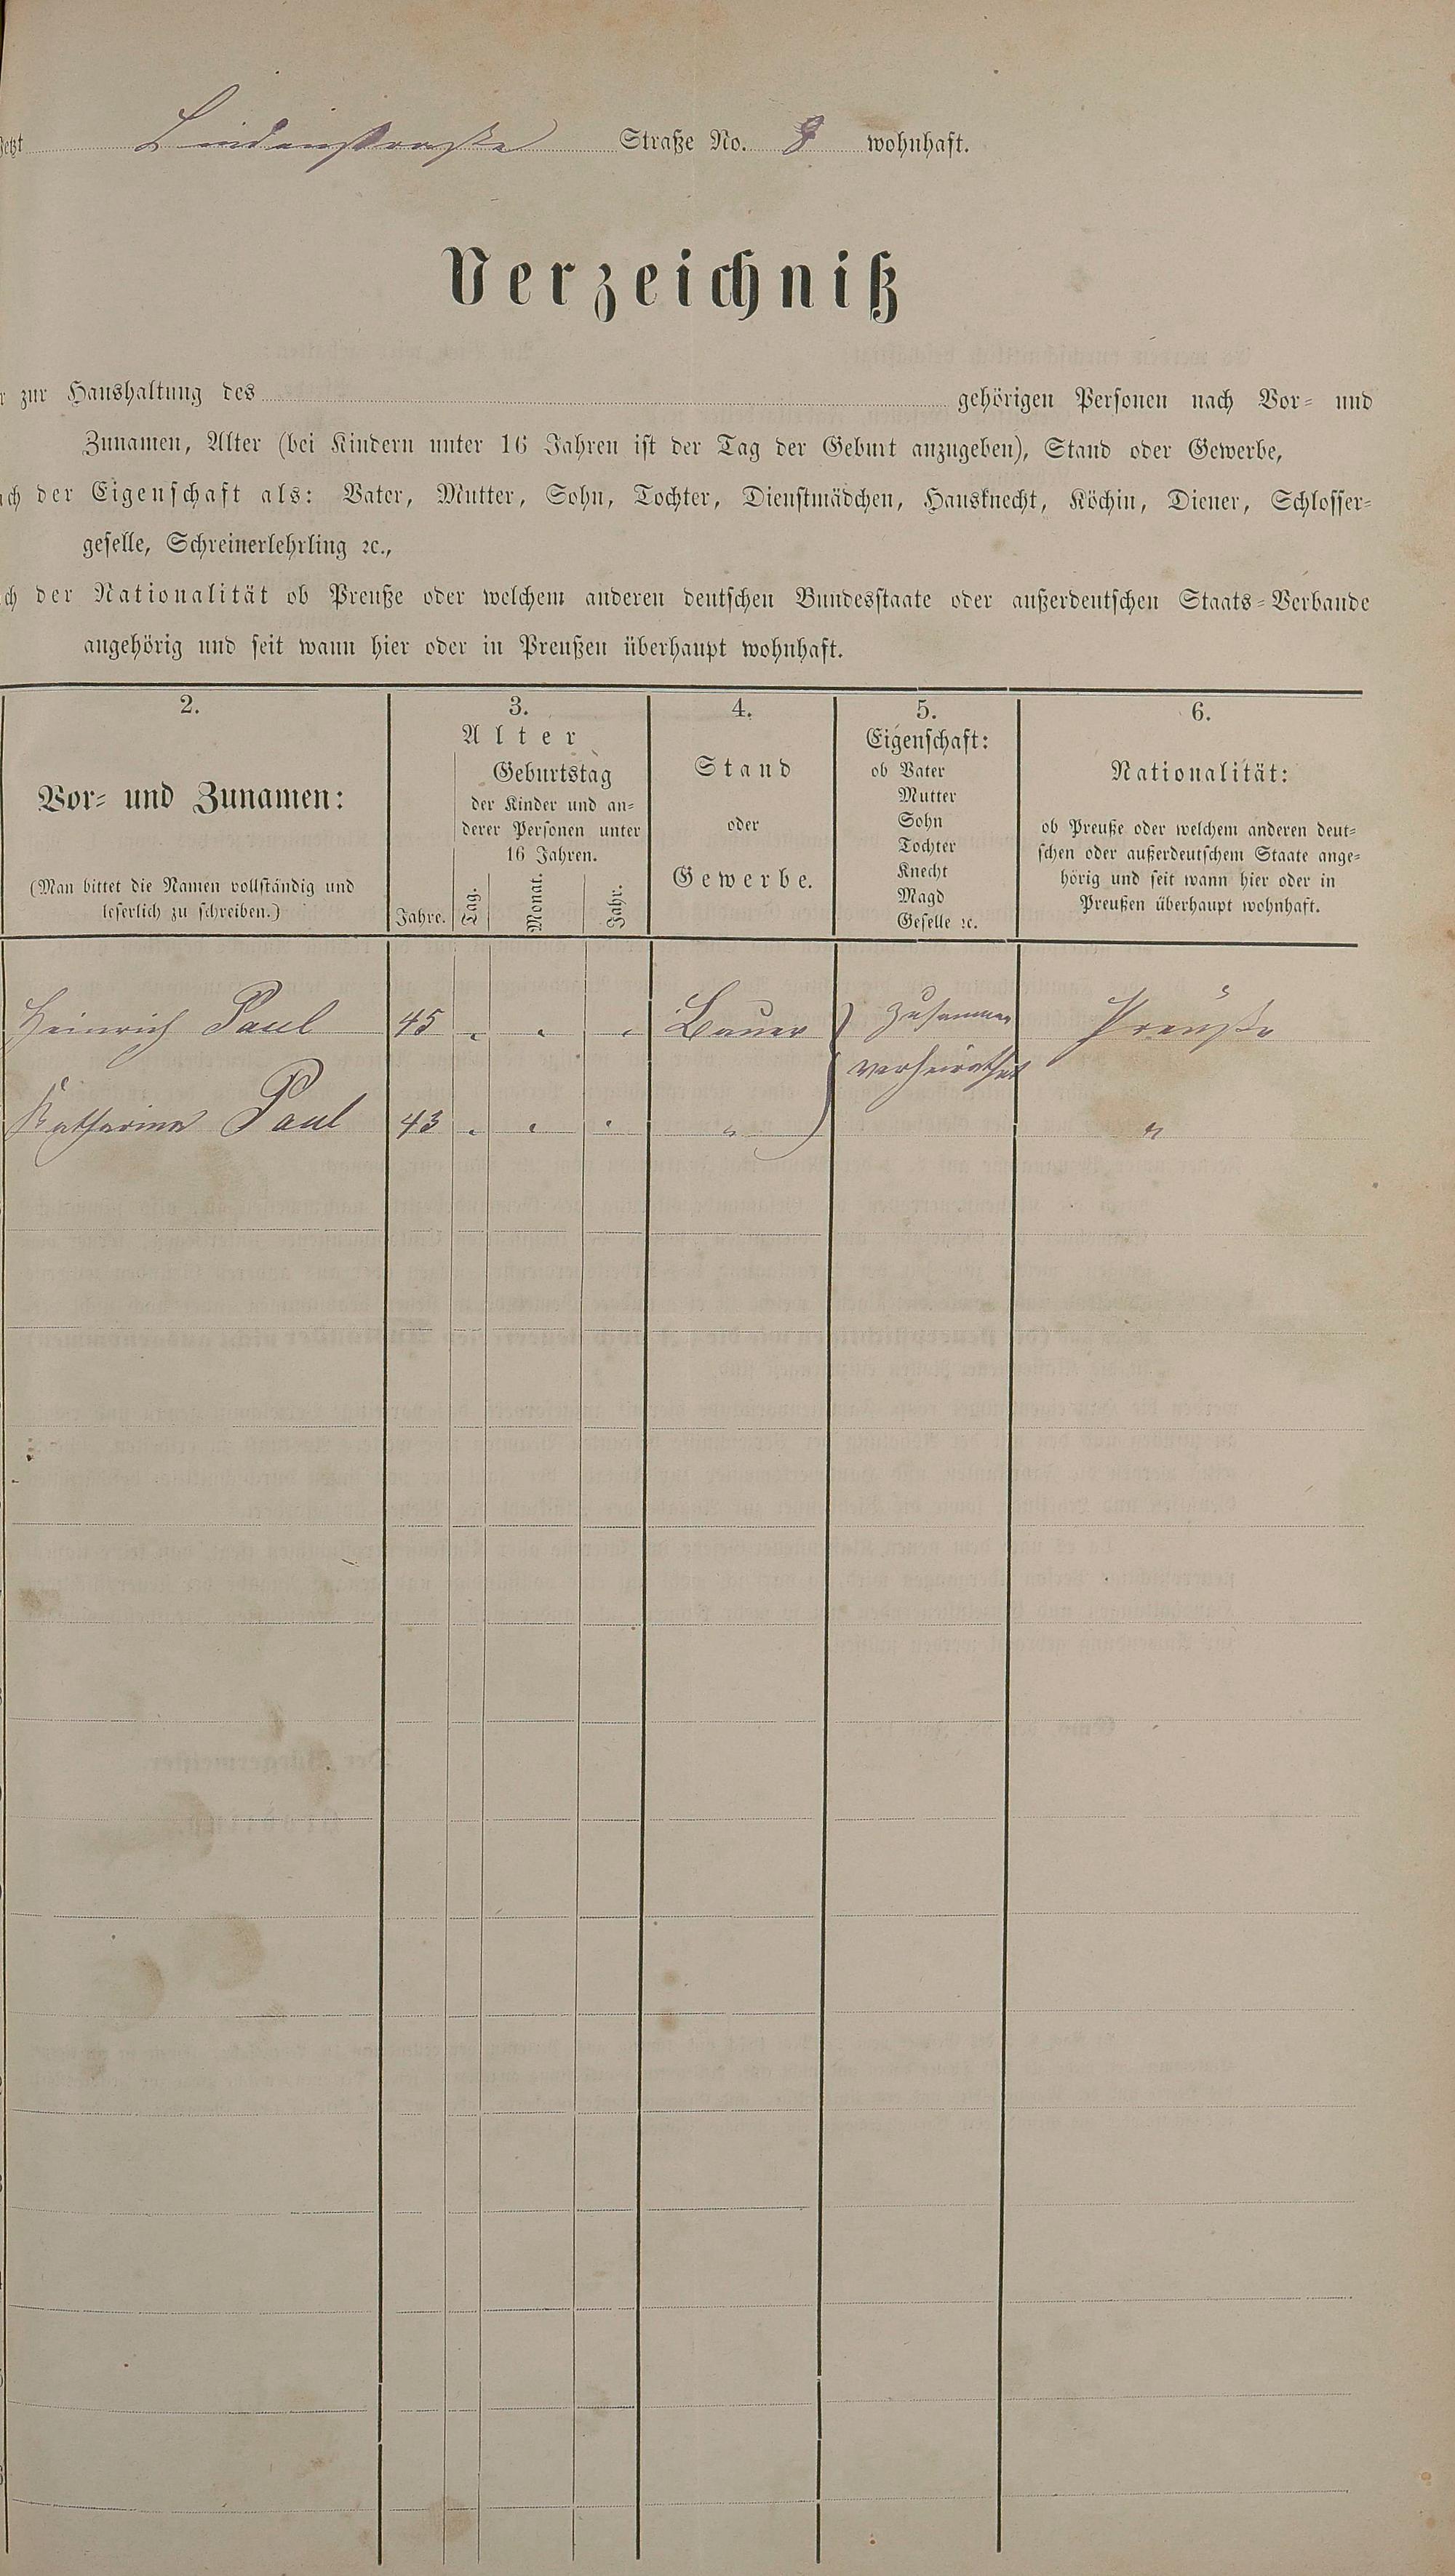 Jetzt Lindenstraße Straße No. 8 wohnhaft.
Verzeichniß
r zur Haushaltung des gehörigen Personen nach Vor- und
Zunamen, Alter (bei Kindern unter 16 Jahren ist der Tag der Geburt anzugeben), Stand oder Gewerbe,
ch der Eigenschaft als: Vater, Mutter, Sohn, Tochter, Dienstmädchen, Hausknecht, Köchin, Diener, Schlosser-
geselle, Schreinerlehrling ꝛc.,
ch der Nationalität ob Preuße oder welchem anderen deutschen Bundesstaate oder außerdeutschen Staats-Verbande
angehörig und seit wann hier oder in Preußen überhaupt wohnhaft.
2.
Vor- und Zunamen:
(Man bittet die Namen vollständig und
leserlich zu schreiben.)
3.
Alter
Geburtstag
der Kinder und an-
derer Personen unter
16 Jahren.
Jahre. Tag. Monat. Jahr.
4.
Stand
oder
Gewerbe.
5.
Eigenschaft:
ob Vater
Mutter
Sohn
Tochter
Knecht
Magd
Geselle ꝛc.
6.
Nationalität:
ob Preuße oder welchem anderen deut-
schen oder außerdeutschem Staate ange-
hörig und seit wann hier oder in
Preußen überhaupt wohnhaft.
Heinrich Paul 45 " " " Bauer } zusammen Preuße
verheirathet
Katharina Paul 43 " " " " "